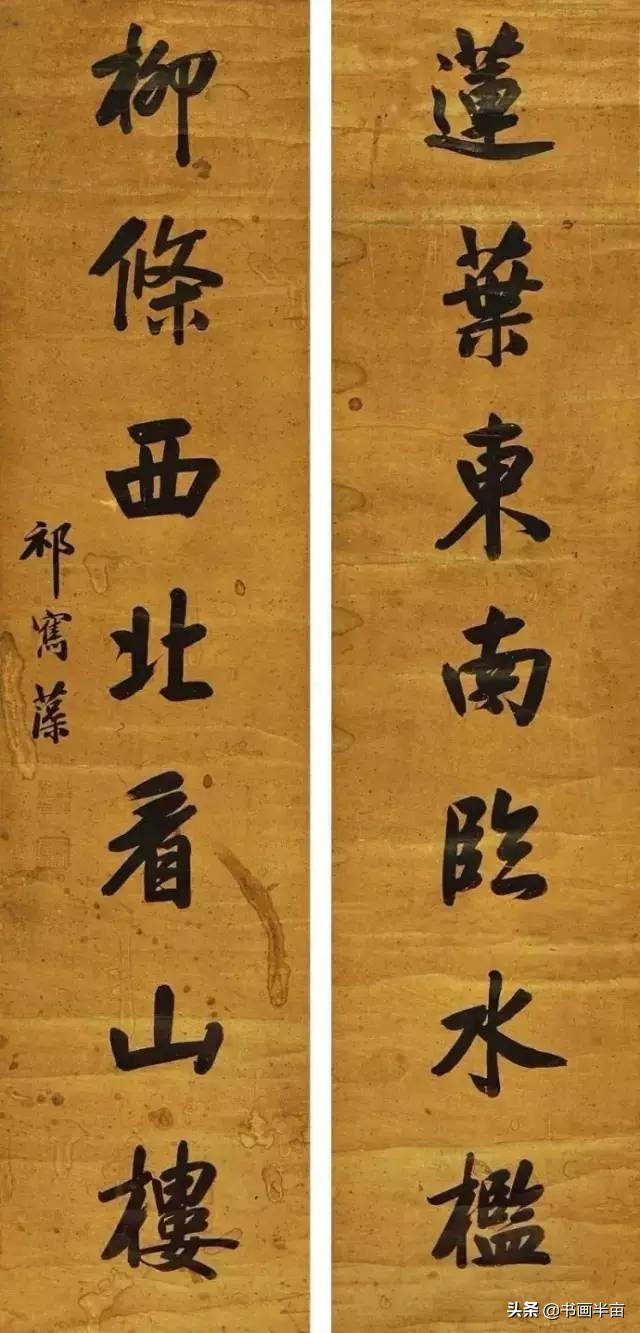 蓮葉東南臨水檻
柳條西北看山樓
祁寯藻
头条 @书画半亩